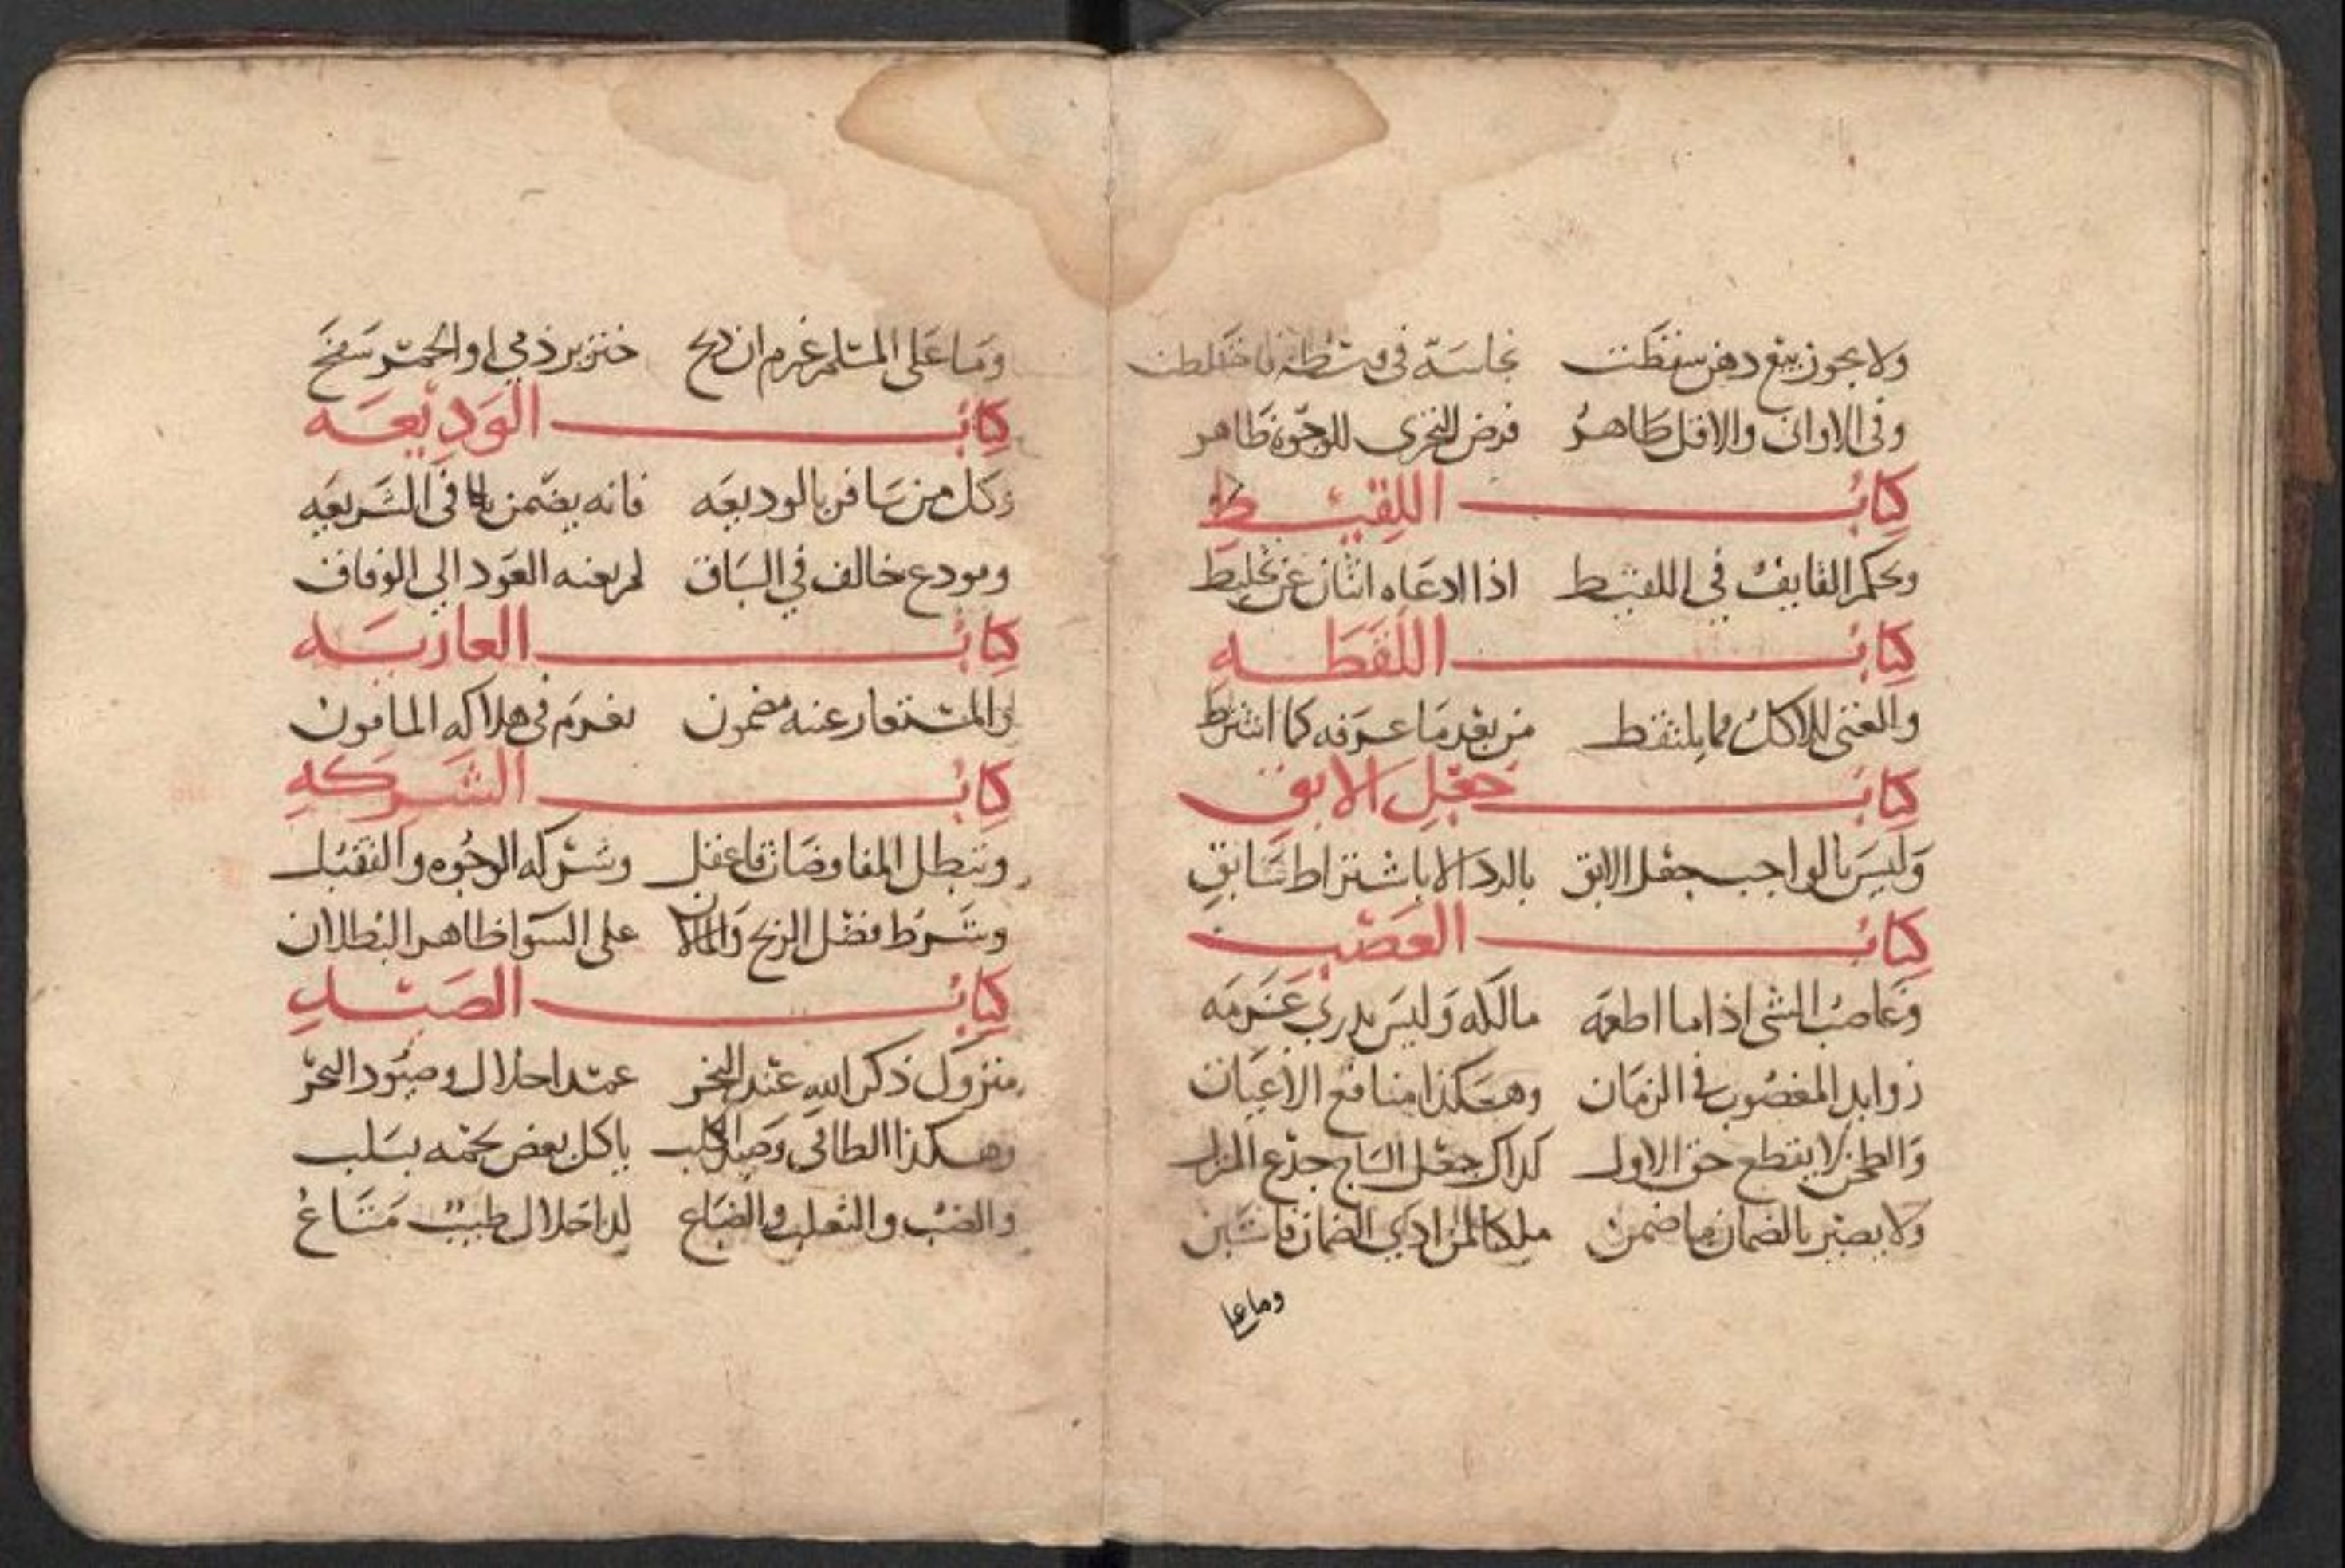 ولا يجوز بيع دهن سقطت نجاسة في وسطه فاختلطت
وفى الاوانى والاقل طاهر فرض التحرى للوجوه ظاهر
كتاب اللقيط
وحكم القايف في اللقيط اذا ادعاه اثنان عن تخليط
كتاب اللقطه
والغنى للاكل مما يلتقط من بعد ما عرفه كما اشترط
كتاب جعل الابق
وليس بالواجب جعل الابق بالرد الا باشتراط سابق
كتاب الغصب
وغاصب الشى اذا ما اطعمه مالكه وليس يدري غرمه
زوايد المغصوب في الزمان وهكذا منافع الاعيان
والطحن لا يقطع حق الاول كذاك جعل الساج جذع المنزل
ولا يصير بالضمان ما ضمن ملكا لمن ادي الضمان فاستبن
وما على
وما على المسلم غرم ان ذبح خنزير ذمي او الخمر سفح
كتاب الوديعه
وكل من سافر بالوديعه فانه يضمن في الشريعه
ومودع خالف في السباق لم يعنه العود الى الوفاق
كتاب العاريه
والمستعار عنه مضمون يغرم في هلاكه المامون
كتاب الشركه
وتبطل المفاوضات فاعقل وشركه الوجوه والتقبل
وشرط فضل الربح والمالان على السوا ظاهر البطلان
كتاب الصيد
متروك ذكر الله عند النحر عمدا حلال وصيود البحر
وهكذا الطافي وصيد الكلب ياكل بعض لحمه بسلب
والضب والثعلب والضباع لدا حلال طيب مشاع